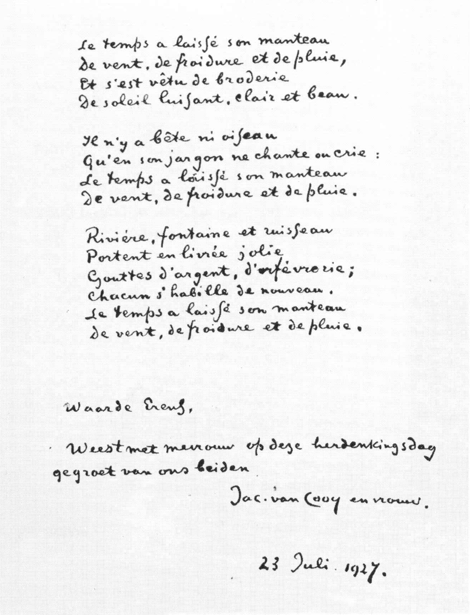 Le temps a laiſsé son manteau
de vent, de froidure et de pluie,
Et s'est vêtu de broderie
De soleil luiſant, clair et beau.
Il n'y a bête ni oiſeau
Qu'en son jargon ne chante ou crie :
Le temps a laiſsé son manteau
De vent, de froidure et de pluie.
Riviére, fontaine et ruiſseau
Portent en livrée jolie
Gouttes d'argent, d'orfévrerie;
Chacun s'habille de nouveau.
Le temps a laiſsé son manteau
de vent, de froidure et de pluie.
Waarde Erens,
Weest met mevrouw op deze herdenkingsdag
gegroet van ons beiden
Jac. van Looy en vrouw.
23 Juli. 1927.